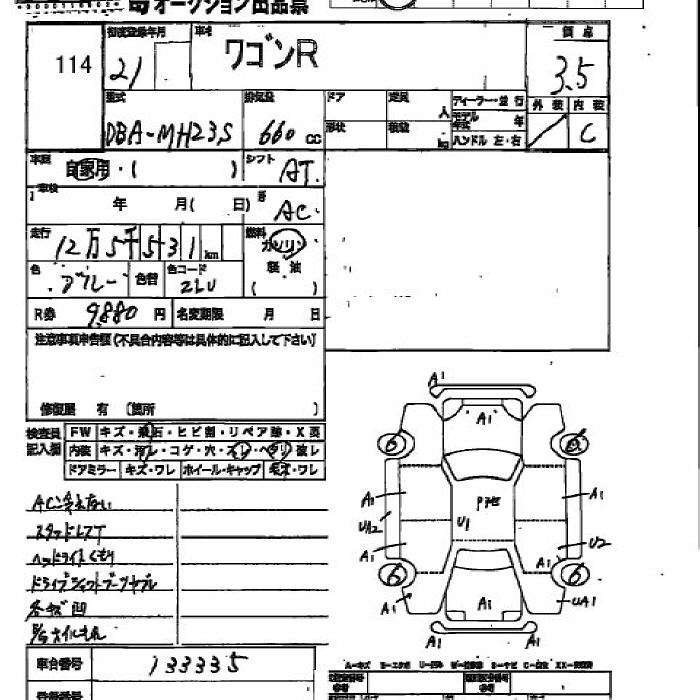 オークション出品票
114
初度登録年月
21
車名
ワゴンR
評価点
3.5
外装 内装
C
型式
DBA-MH23S
排気量
660 cc
ドア
形状
定員 人
積載 kg
ディーラー・並行
モデル年式 年
ハンドル 左・右
車歴
自家用・( )
シフト
AT
車検
年 月( 日)
AC
走行
12万5千531 km
燃料
ガソリン
軽油
( )
色
ブルー
色替
色コード
ZLU
R券 9,880 円
名変期限 月 日
注意事項申告欄(不具合内容等は具体的に記入して下さい)
修復歴 有 〔箇所 〕
検査員記入欄
FW キズ・飛石・ヒビ割・リペア跡・X要
内装 キズ・汚レ・コゲ・穴・スレ・ヘタリ・破レ
ドアミラー キズ・ワレ ホイール・キャップ キズ・ワレ
AC冷えない
スタッドレスT
ヘッドライトくもり
ドライブシャフトブーツヤブレ
各キズ凹
E/gオイルもれ
車台番号 133335
登録番号
A1
A1
6
6
A1
A1
UA2
U1
P75
A1
A1
U2
A1
6
6
A1
A1
UA1
A1
A1